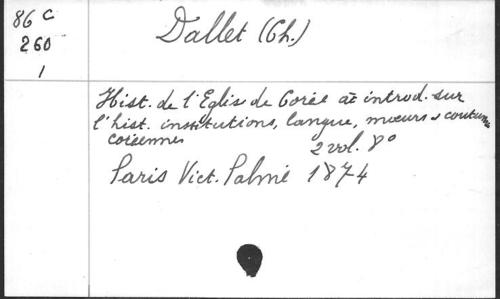 86 C
260
1
Dallet (Ch.)
Hist. de l'Eglise de Corée av introd. sur
l'hist. institutions, langue, mœurs & coutumes
coréennes
2 vol. 8°
Paris Vict. Palmé 1874